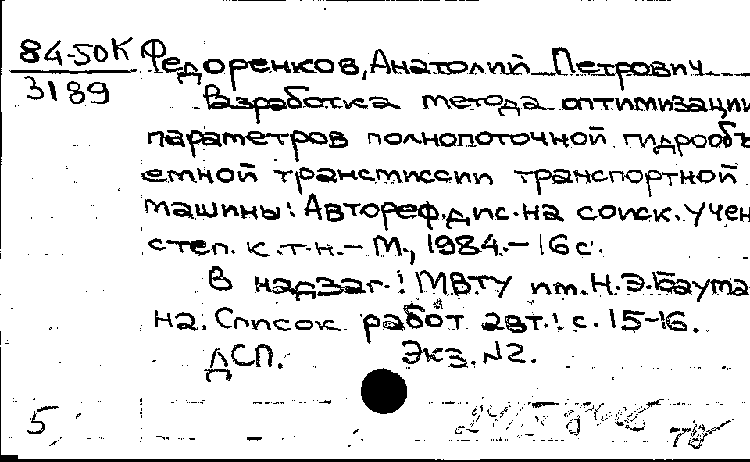 84-50К Федоренков, Анатолий Петрович
3189
Разработка метода оптимизации
параметров полнопоточной гидрообъ
емной трансмиссии транспортной
машины: Автореф. дис. на соиск. учен
степ. к.т.н. - М., 1984. - 16 с.
В надзаг.: МВТУ им. Н.Э. Баума
на. Список работ авт.: с. 15-16.
ДСП. Экз. N2.
5